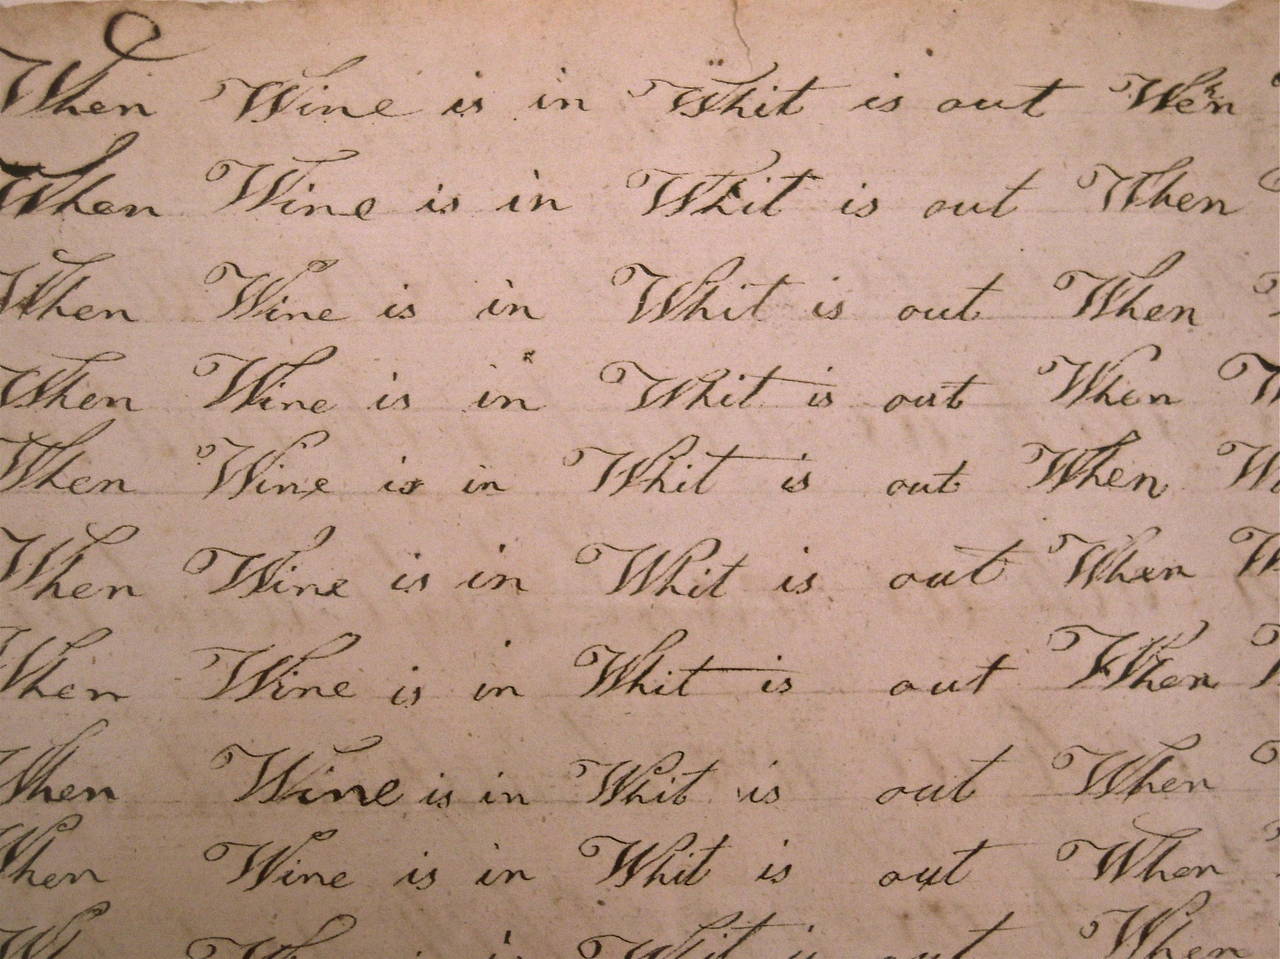 When Wine is in Whit is out When
When Wine is in Whit is out When
When Wine is in Whit is out When
When Wine is in Whit is out When
When Wine is in Whit is out When
When Wine is in Whit is out When
When Wine is in Whit is out When
When Wine is in Whit is out When
When Wine is in Whit is out When
is in Whit is out When